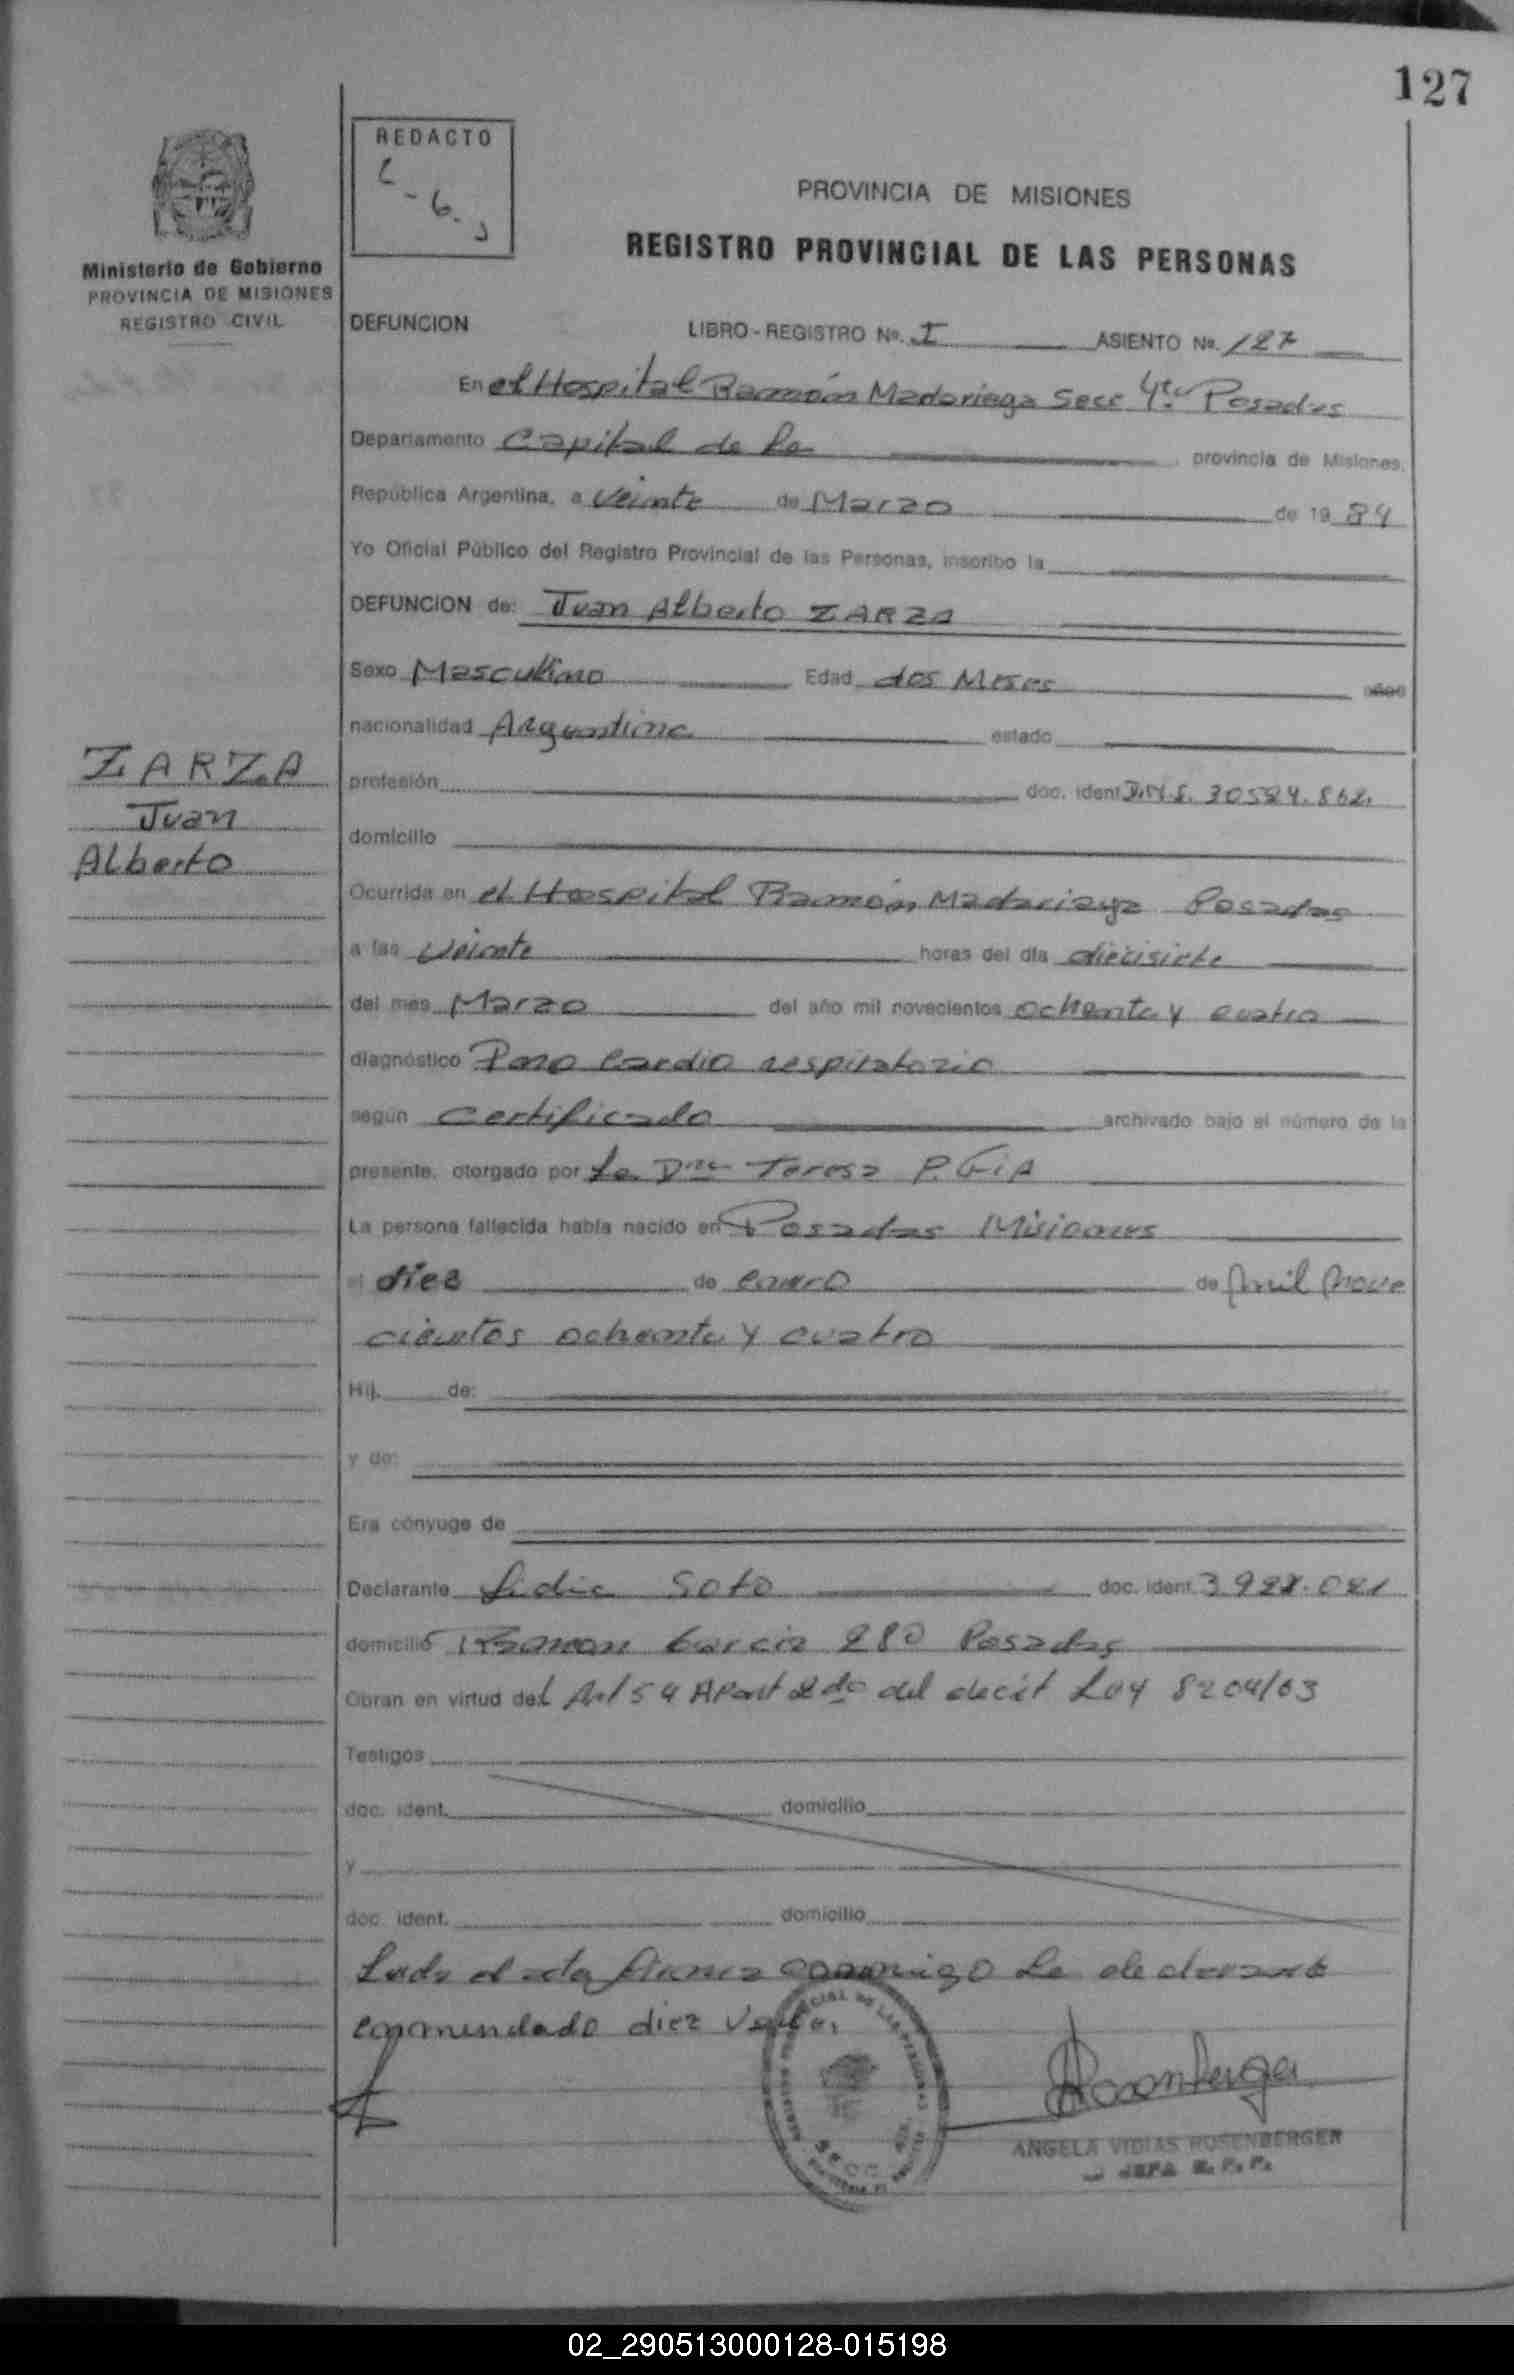 127
REDACTO
Ministerio de Gobierno
PROVINCIA DE MISIONES
REGISTRO CIVIL
PROVINCIA DE MISIONES
REGISTRO PROVINCIAL DE LAS PERSONAS
DEFUNCION LIBRO-REGISTRO Nº. I ASIENTO Nº. 127
En el Hospital Ramón Madariaga Secc 4ta Posadas
Departamento Capital de la provincia de Misiones,
República Argentina, a veinte de Marzo de 19 84
Yo Oficial Público del Registro Provincial de las Personas, inscribo la
DEFUNCION de: Juan Alberto ZARZA
Sexo Masculino Edad dos Meses años
nacionalidad Argentina estado
ZARZA
Juan
Alberto
profesión doc. ident D.N.I. 30584.862.
domicilio
Ocurrida en el Hospital Ramón Madariaga Posadas
a las veinte horas del día diecisiete
del mes Marzo del año mil novecientos ochenta y cuatro
diagnóstico Paro Cardio respiratorio
según certificado archivado bajo el número de la
presente, otorgado por La Dra Teresa P.
La persona fallecida había nacido en Posadas Misiones
el diez de enero de mil nove
cientos ochenta y cuatro
Hij. de:
y de:
Era cónyuge de
Declarante Lidia Soto doc. ident. 3.928.021
domicilio Ramon Garcia 280 Posadas
Obran en virtud del Art 54 Apart 2do del decret Ley 8204/63
Testigos
doc. ident. domicilio
y
doc. ident. domicilio
Leida el acta firma conmigo la declarante
enmendado diez Vale.
Rosenberger
ANGELA VIDIAS ROSENBERGER
JEFA R. P. P.
02_290513000128-015198